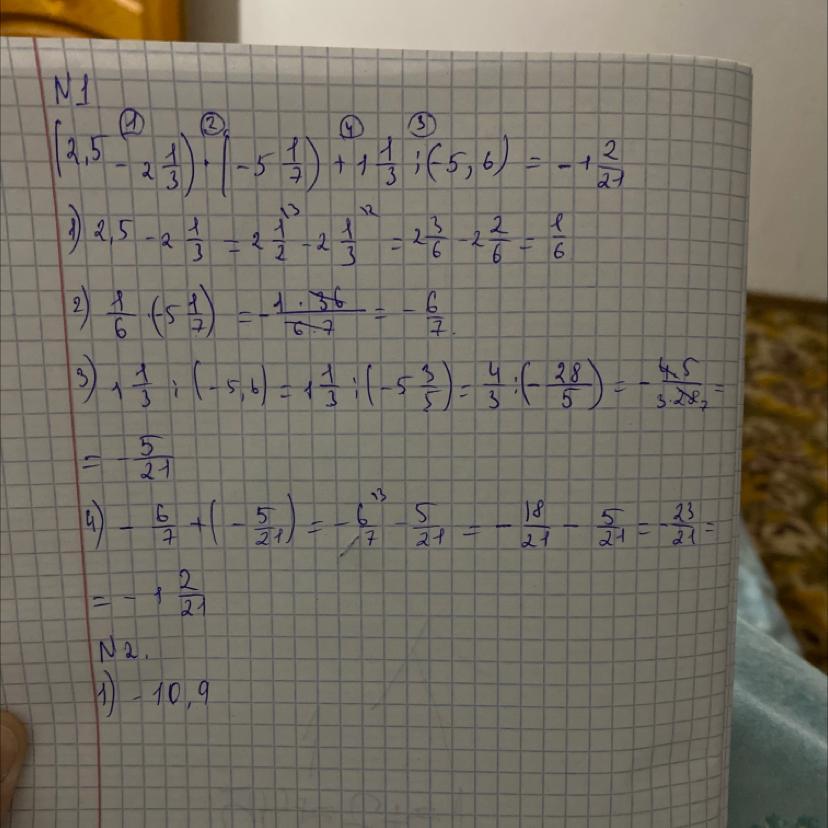 N1
① ② ④ ③
(2,5 - 2 1/3) · (-5 1/7) + 1 1/3 : (-5,6) = -1 2/21
1) 2,5 - 2 1/3 = 2 1/2 - 2 1/3 = 2 3/6 - 2 2/6 = 1/6
2) 1/6 · (-5 1/7) = - 1·36/6·7 = - 6/7.
3) 1 1/3 : (-5,6) = 1 1/3 : (-5 3/5) = 4/3 : (- 28/5) = - 4·5/3·28 7 =
= - 5/21
4) - 6/7 + (- 5/21) = - 6/7 - 5/21 = - 18/21 - 5/21 = - 23/21 =
= - 1 2/21
N2.
1) - 10,9